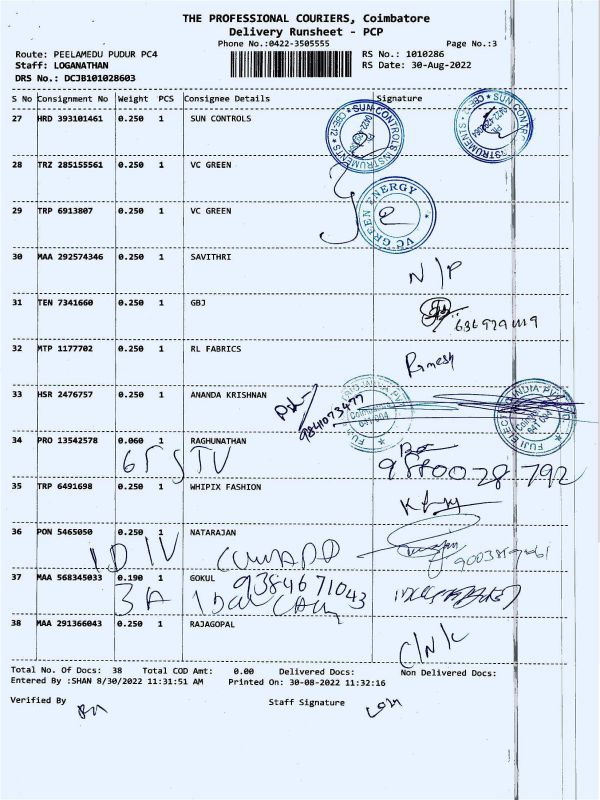 THE PROFESSIONAL COURIERS, Coimbatore
Delivery Runsheet - PCP
Phone No.:0422-3505555 Page No.:3
Route: PEELAMEDU PUDUR PC4 RS No.: 1010286
Staff: LOGANATHAN RS Date: 30-Aug-2022
DRS No.: DCJB101028603
S No Consignment No Weight PCS Consignee Details Signature
27 HRD 393101461 0.250 1 SUN CONTROLS
SUN CONTROLS INSTRUMENTS
28 TRZ 285155561 0.250 1 VC GREEN
29 TRP 6913807 0.250 1 VC GREEN
VC GREEN ENERGY
30 MAA 292574346 0.250 1 SAVITHRI
N/P
31 TEN 7341660 0.250 1 GBJ
32 MTP 1177702 0.250 1 RL FABRICS
Ramesh
33 HSR 2476757 0.250 1 ANANDA KRISHNAN
9841073477
34 PRO 13542578 0.060 1 RAGHUNATHAN
9880028792
35 TRP 6491698 0.250 1 WHIPIX FASHION
36 PON 5465050 0.250 1 NATARAJAN
37 MAA 568345033 0.190 1 GOKUL
9384671043
3A
38 MAA 291366043 0.250 1 RAJAGOPAL
C/N/L
Total No. Of Docs: 38 Total COD Amt: 0.00 Delivered Docs: Non Delivered Docs:
Entered By :SHAN 8/30/2022 11:31:51 AM Printed On: 30-08-2022 11:32:16
Verified By Staff Signature